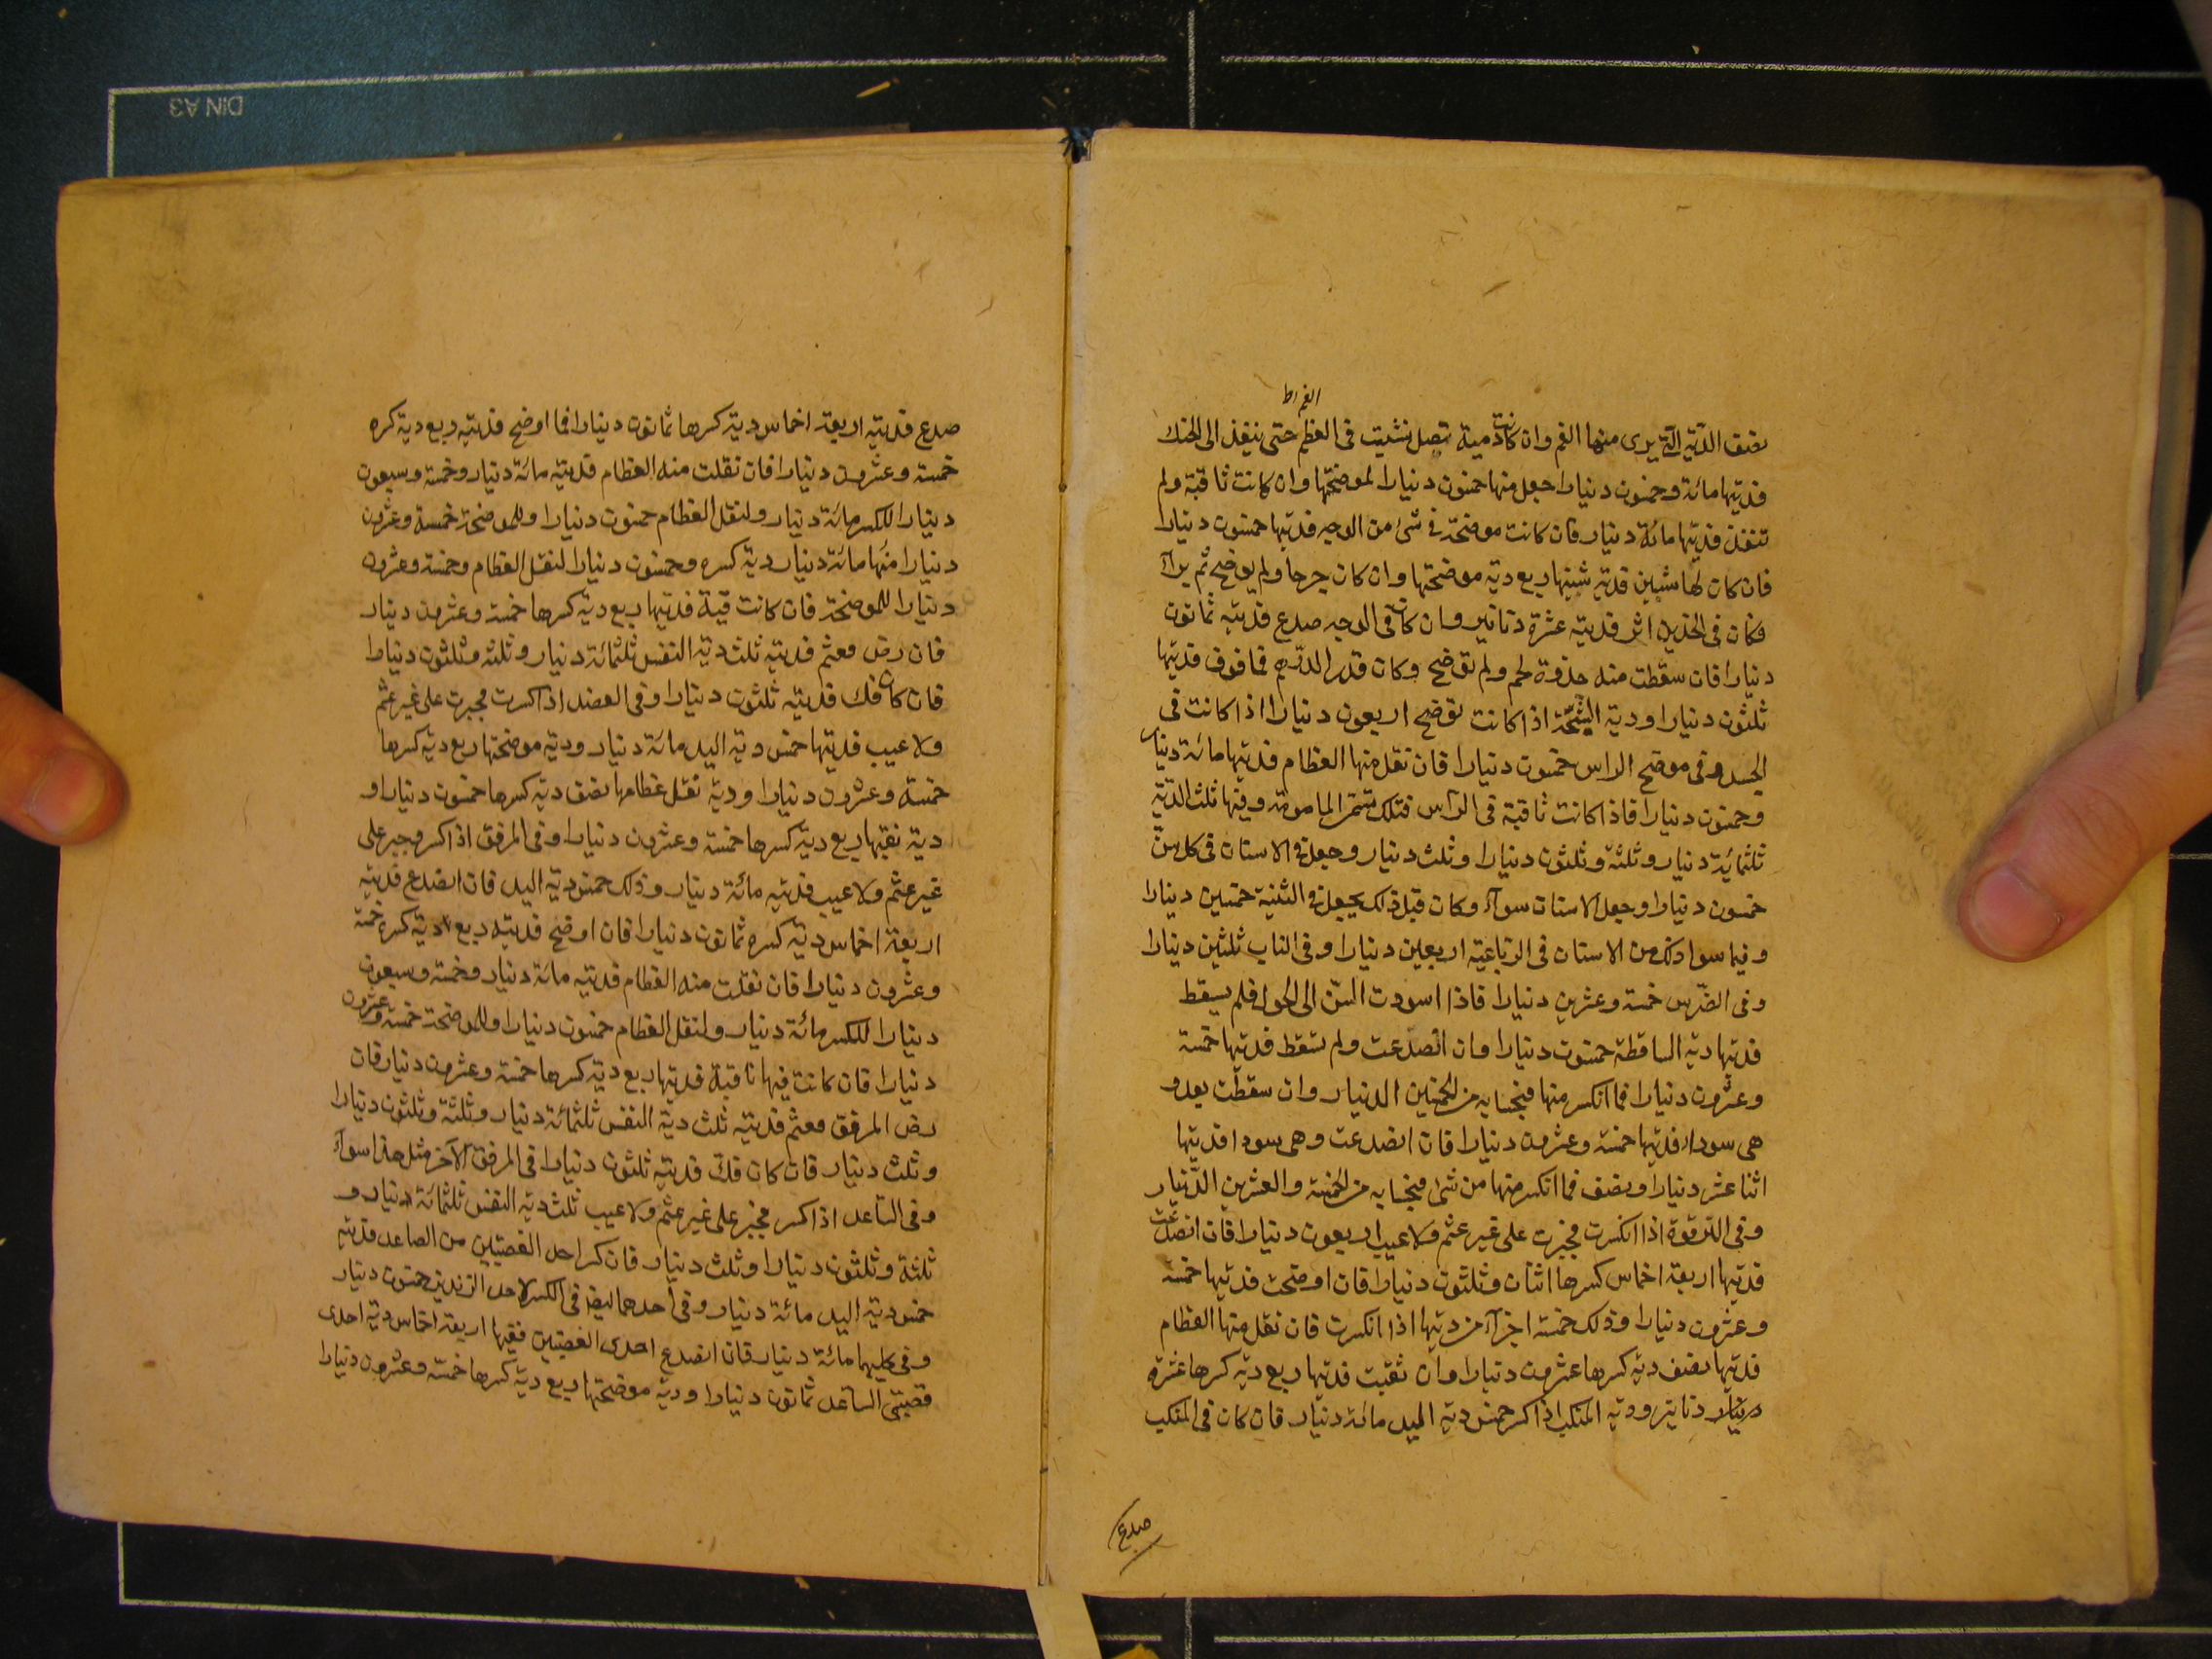 الفم ط
نصف الدّية التى يرى منها الفم وان كانت رمية تصل نشبت فى العظم حتى ينفذ الى الحنك
فديتها مائة وخمسون دنيارا جعل منها خمسون دنيارا لموضحتها وان كانت ثاقبة ولم
تنفذ فديتها مائة دنيار فان كانت موضحة فى شئ من الوجه فديتها خمسون دنيارا
فان كان لها شين فدية شينها ربع دية موضحتها وان كان جرحا ولم يوضح ثم برأ
وكان فى الخدين اثر فديته عشرة دنانير وان كان فى الوجه صدع فديته ثمانون
دنيارا فان سقطت منه جذوة لحم ولم توضح وكان قدر الدرهم فما فوق فديتها
ثلثون دنيارا ودية الشجّة اذا كانت توضح اربعون دنيارا اذا كانت فى
الجسد وفى موضح الراس خمسون دنيارا فان نقل منها العظام فديتها مائة دنيار
وخمسون دنيارا فاذا كانت ثاقبة فى الرّاس فتلك تسمّى المامومة وفيها ثلث الدّية
ثلثمائة دنيار وثلثة وثلثون دنيارا وثلث دنيار وجعل فى الاسنان فى كل سنّ
خمسون دنيارا وجعل الاسنان سواء وكان قبل ذلك يجعل فى الثنية خمسين دنيارا
وفيما سوا ذلك من الاسنان فى الرّباعية اربعين دنيارا وفى الناب ثلثين دنيارا
وفى الضّرس خمسة وعشرين دنيارا فاذا اسودت السّن الى الحول فلم يسقط
فديتها دية الساقطة خمسون دنيارا وان انصدعت ولم تسقط فديتها خمسة
وعشرون دنيارا فما انكسر منها فبحسابه من الخمسين الدنيار وان سقطت بعد و
هى سوداء فديتها خمسة وعشرون دنيارا فان انصدعت وهى سودا فديتها
اثنا عشر دنيارا ونصف فما انكسر منها من شئ فبحسابه من الخمسة والعشرين الدّنيار
وفى الترقوة اذا انكسرت فجبرت على غير عثم ولا عيب اربعون دنيارا فان انصدعت
فديتها اربعة اخماس كسرها اثنان وثلثون دنيارا فان اوضحت فديتها خمسة
وعشرون دنيارا وذلك خمسة اجزآء من ديتها اذا انكسرت فان نقل منها العظام
فديتها نصف دية كسرها عشرون دنيارا وان نقبت فديتها ربع دية كسرها عشرة
دنيار دنانير ودية المنكب اذا كسر خمس دية اليد مائة دنيار فان كان فى المنكب
صدع
صدع فديته اربعة اخماس دية كسرها ثمانون دنيارا فما اوضح فديته ربع دية كسره
خمسة وعشرون دنيارا فان نقلت منه العظام فديته مائة دنيار وخمسة وسبعون
دنيارا للكسر مائة دنيار ولنقل العظام خمسون دنيارا وللموضحة خمسة وعشرون
دنيارا منها مائة دنيار دية كسره وخمسون دنيارا لنقل العظام وخمسة وعشرون
دنيارا للموضحة فان كانت قبة فديتها ربع دية كسرها خمسة وعشرون دنيار
فان رض معثم فديته ثلث دية النفس ثلثمائة دنيار وثلثة وثلثون دنيارا
فان كان فك فديته ثلثون دنيارا وفى العضد اذا كسرت فجبرت على غير عثم
ولا عيب فديتها خمس دية اليد مائة دنيار ودية موضحتها ربع دية كسرها
خمسة وعشرون دنيارا ودية نقل عظامها نصف دية كسرها خمسون دنيارا و
دية نقبها ربع دية كسرها خمسة وعشرون دنيارا وفى المرفق اذا كسر وجبر على
غير عثم ولا عيب فديته مائة دنيار وذلك خمس دية اليد فان انصدع فديته
اربعة اخماس دية كسره ثمانون دنيارا فان اوضح فديته ربع دية كسره خمسة
وعشرون دنيارا فان نقلت منه العظام فديته مائة دنيار وخمسة وسبعون
دنيارا للكسر مائة دنيار ولنقل العظام خمسون دنيارا وللموضحة خمسة وعشرون
دنيارا فان كانت فيها ناقبة فديتها ربع دية كسرها خمسة وعشرون دنيار فان
رض المرفق معثم فديته ثلث دية النفس ثلثمائة دنيار وثلثة وثلثون دنيارا
وثلث دنيار فان كان فكّ فديته ثلثون دنيارا فى المرفق الآخر مثل هذا سوآء
وفى الساعد اذا كسر فجبر على غير عثم ولا عيب ثلث دية النفس ثلثمائة دنيار و
ثلثة وثلثون دنيارا وثلث دنيار فان كسر احد القصبتين من الصاعد فديته
خمس دية اليد مائة دنيار وفى احدهما ايضا فى الكسر لاحد الزندين خمسون دنيار
وفى كليهما مائة دنيار فان انصدع احدى القصبتين ففيها اربعة اخماس دية احدى
قصبتى الساعد ثمانون دنيارا ودية موضحتها ربع دية كسرها خمسة وعشرون دنيارا